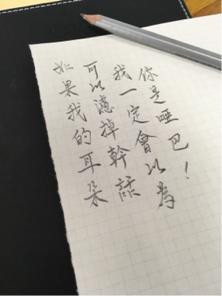 如果我的耳朵
可以濾掉幹話
我一定會以為
你是啞巴！